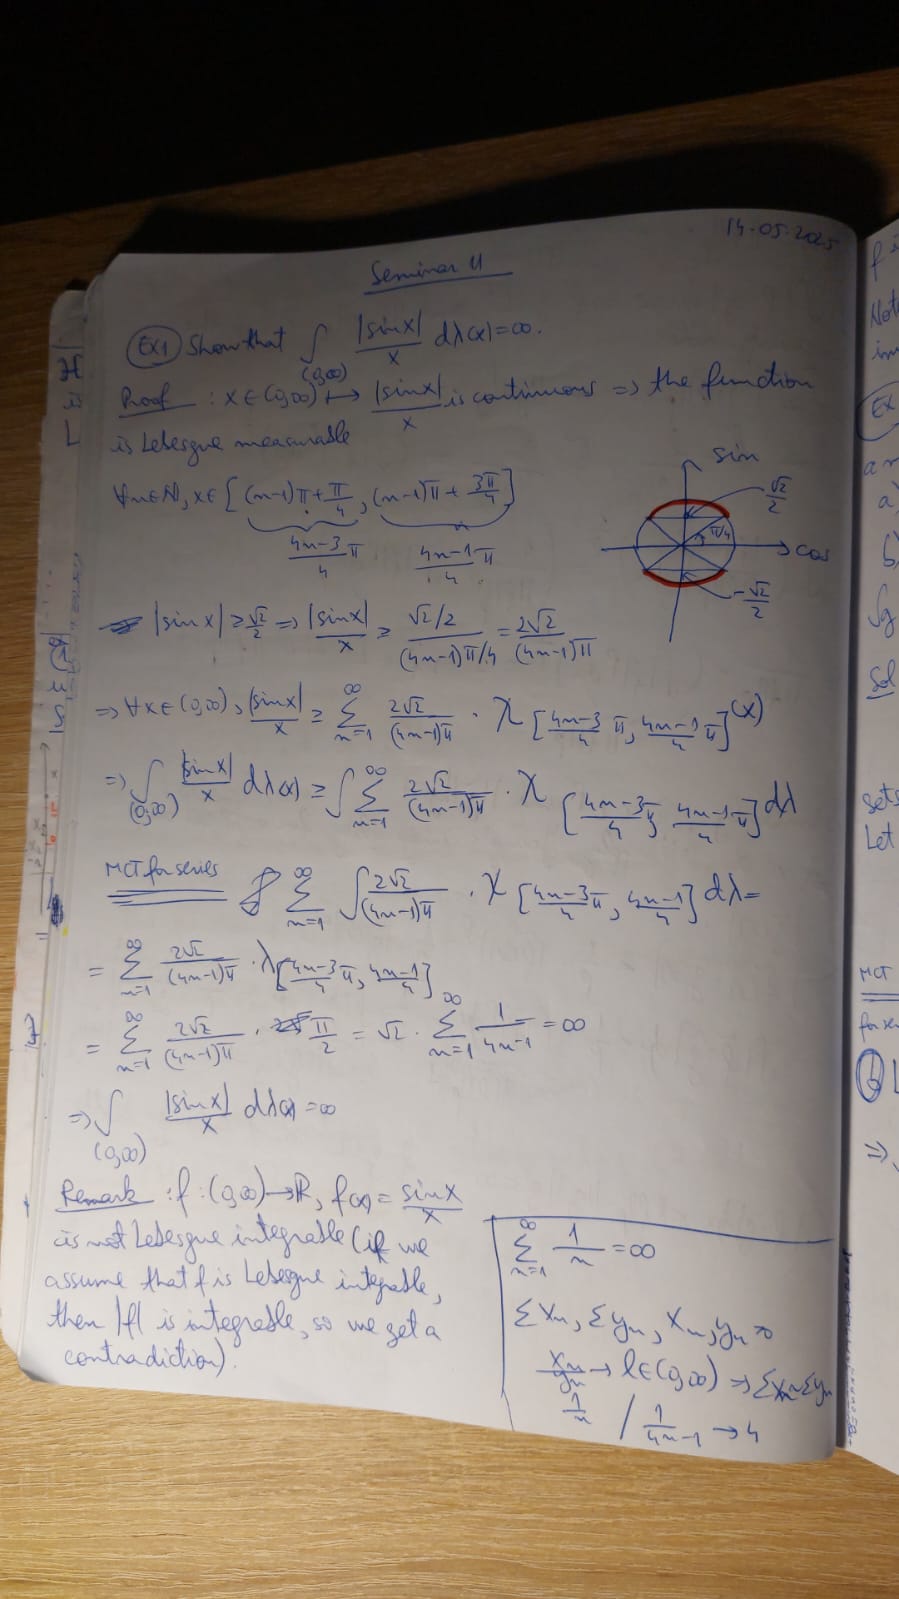 14-05-2025
Seminar 11
Ex1 Show that ∫_(0,∞) |sin x|/x dλ(x) = ∞.
Proof: x ∈ (0,∞) ↦ |sin x|/x is continuous => the function
is Lebesgue measurable
∀n∈ℕ, x∈[(n-1)π + π/4, (n-1)π + 3π/4]
(4n-3)/4 π (4n-1)/4 π
sin
√2/2
π/4
cos
-√2/2
|sin x| ≥ √2/2 => |sin x|/x ≥ (√2/2)/((4n-1)π/4) = 2√2/((4n-1)π)
=> ∀x∈(0,∞), |sin x|/x ≥ ∑_{n=1}^∞ 2√2/((4n-1)π) · χ_[(4n-3)/4 π, (4n-1)/4 π](x)
=> ∫_(0,∞) |sin x|/x dλ(x) ≥ ∫ ∑_{n=1}^∞ 2√2/((4n-1)π) · χ_[(4n-3)/4 π, (4n-1)/4 π] dλ
MCT for series ∑_{n=1}^∞ ∫ 2√2/((4n-1)π) · χ_[(4n-3)/4 π, (4n-1)/4] dλ =
= ∑_{n=1}^∞ 2√2/((4n-1)π) · λ[(4n-3)/4 π, (4n-1)/4]
= ∑_{n=1}^∞ 2√2/((4n-1)π) · π/2 = √2 · ∑_{n=1}^∞ 1/(4n-1) = ∞
=> ∫_(0,∞) |sin x|/x dλ(x) = ∞
Remark: f: (0,∞) → ℝ, f(x) = sin x/x
is not Lebesgue integrable (if we
assume that f is Lebesgue integrable,
then |f| is integrable, so we get a
contradiction).
∑_{n=1}^∞ 1/n = ∞
∑x_n, ∑y_n, x_n, y_n >0
x_n/y_n → l∈(0,∞) => ∑x_n ~ ∑y_n
1/n / 1/(4n-1) → 4
f
Not
Ex
a)
Sol
sets
Let
MCT
b)
=>